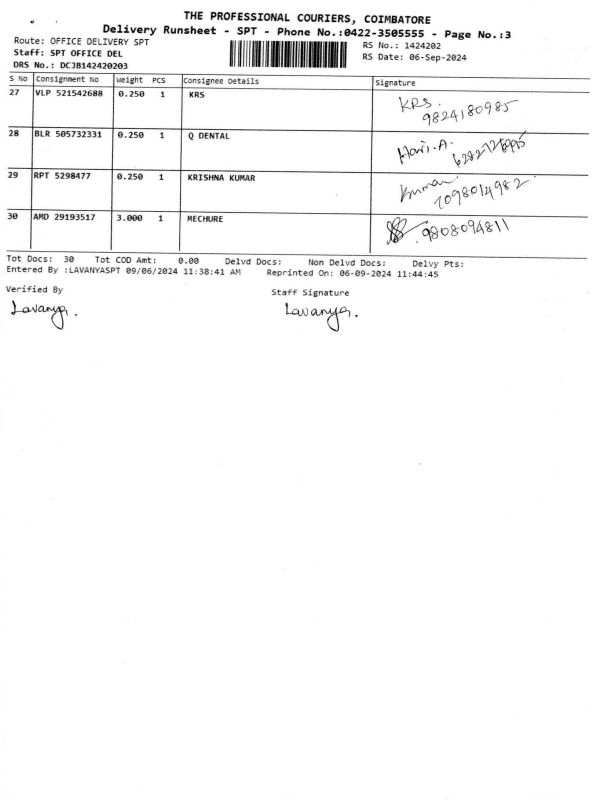 THE PROFESSIONAL COURIERS, COIMBATORE
Delivery Runsheet - SPT - Phone No.:0422-3505555 - Page No.:3
Route: OFFICE DELIVERY SPT RS No.: 1424202
Staff: SPT OFFICE DEL RS Date: 06-Sep-2024
DRS No.: DCJB142420203
S No Consignment No Weight PCS Consignee Details Signature
27 VLP 521542688 0.250 1 KRS KRS.
9824180985
28 BLR 505732331 0.250 1 Q DENTAL Hari.A.
29 RPT 5298477 0.250 1 KRISHNA KUMAR Kumar
7098014982
30 AMD 29193517 3.000 1 MECHURE 9808094811
Tot Docs: 30 Tot COD Amt: 0.00 Delvd Docs: Non Delvd Docs: Delvy Pts:
Entered By :LAVANYASPT 09/06/2024 11:38:41 AM Reprinted On: 06-09-2024 11:44:45
Verified By Staff Signature
Lavanya. Lavanya.